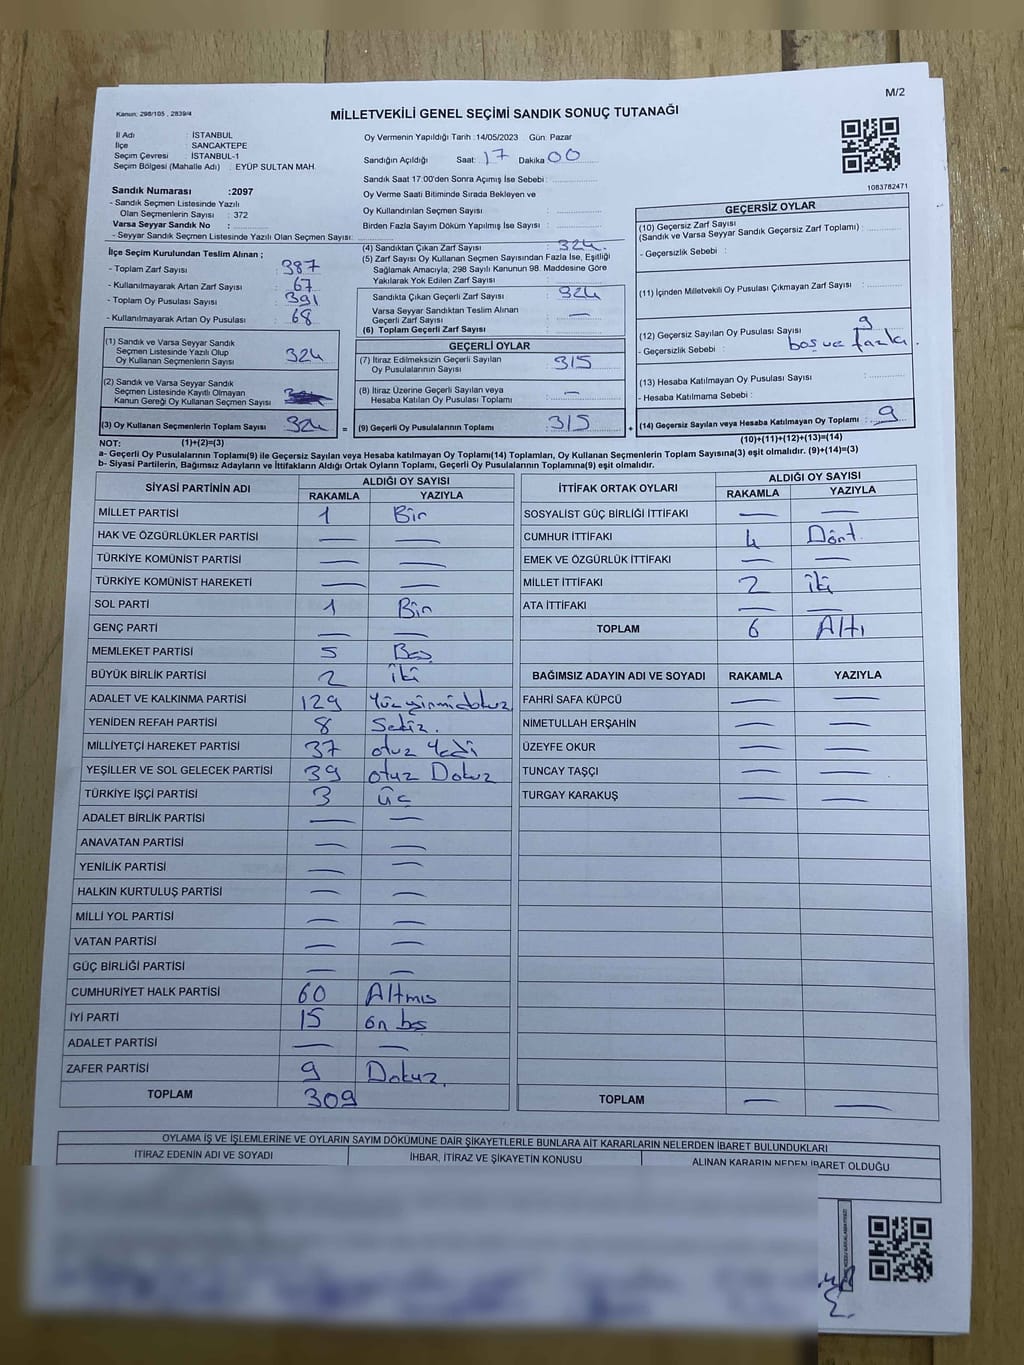 M/2
Kanun: 298/105 , 2839/4
MİLLETVEKİLİ GENEL SEÇİMİ SANDIK SONUÇ TUTANAĞI
İl Adı : İSTANBUL
İlçe : SANCAKTEPE
Seçim Çevresi : İSTANBUL-1
Seçim Bölgesi (Mahalle Adı) : EYÜP SULTAN MAH.
Sandık Numarası :2097
- Sandık Seçmen Listesinde Yazılı
Olan Seçmenlerin Sayısı : 372
Varsa Seyyar Sandık No :
- Seyyar Sandık Seçmen Listesinde Yazılı Olan Seçmen Sayısı:
İlçe Seçim Kurulundan Teslim Alınan ;
- Toplam Zarf Sayısı : 387
- Kullanılmayarak Artan Zarf Sayısı : 67
- Toplam Oy Pusulası Sayısı : 391
- Kullanılmayarak Artan Oy Pusulası : 68
(1) Sandık ve Varsa Seyyar Sandık
Seçmen Listesinde Yazılı Olup
Oy Kullanan Seçmenlerin Sayısı 324
(2) Sandık ve Varsa Seyyar Sandık
Seçmen Listesinde Kayıtlı Olmayan
Kanun Gereği Oy Kullanan Seçmen Sayısı
(3) Oy Kullanan Seçmenlerin Toplam Sayısı 324 =
Oy Vermenin Yapıldığı Tarih :14/05/2023 Gün: Pazar
Sandığın Açıldığı Saat: 17 Dakika 00
Sandık Saat 17:00'den Sonra Açımış İse Sebebi :
Oy Verme Saati Bitiminde Sırada Bekleyen ve
Oy Kullandırılan Seçmen Sayısı :
Birden Fazla Sayım Döküm Yapılmış İse Sayısı :
(4) Sandıktan Çıkan Zarf Sayısı : 324.
(5) Zarf Sayısı Oy Kullanan Seçmen Sayısından Fazla İse, Eşitliği
Sağlamak Amacıyla; 298 Sayılı Kanunun 98. Maddesine Göre
Yakılarak Yok Edilen Zarf Sayısı :
Sandıkta Çıkan Geçerli Zarf Sayısı : 324
Varsa Seyyar Sandıktan Teslim Alınan
Geçerli Zarf Sayısı : —
(6) Toplam Geçerli Zarf Sayısı :
GEÇERLİ OYLAR
(7) İtiraz Edilmeksizin Geçerli Sayılan
Oy Pusulalarının Sayısı : 315
(8) İtiraz Üzerine Geçerli Sayılan veya
Hesaba Katılan Oy Pusulası Toplamı : —
(9) Geçerli Oy Pusulalarının Toplamı : 315 +
1083782471
GEÇERSİZ OYLAR
(10) Geçersiz Zarf Sayısı
(Sandık ve Varsa Seyyar Sandık Geçersiz Zarf Toplamı) :
- Geçersizlik Sebebi :
(11) İçinden Milletvekili Oy Pusulası Çıkmayan Zarf Sayısı :
(12) Geçersiz Sayılan Oy Pusulası Sayısı : 9
- Geçersizlik Sebebi : boş ve fazla.
(13) Hesaba Katılmayan Oy Pusulası Sayısı :
- Hesaba Katılmama Sebebi :
(14) Geçersiz Sayılan veya Hesaba Katılmayan Oy Toplamı : 9
NOT: (1)+(2)=(3) (10)+(11)+(12)+(13)=(14)
a- Geçerli Oy Pusulalarının Toplamı(9) ile Geçersiz Sayılan veya Hesaba katılmayan Oy Toplamı(14) Toplamları, Oy Kullanan Seçmenlerin Toplam Sayısına(3) eşit olmalıdır. (9)+(14)=(3)
b- Siyasi Partilerin, Bağımsız Adayların ve İttifakların Aldığı Ortak Oyların Toplamı, Geçerli Oy Pusulalarının Toplamına(9) eşit olmalıdır.
SİYASİ PARTİNİN ADI ALDIĞI OY SAYISI
RAKAMLA YAZIYLA
MİLLET PARTİSİ 1 Bir
HAK VE ÖZGÜRLÜKLER PARTİSİ — —
TÜRKİYE KOMÜNİST PARTİSİ — —
TÜRKİYE KOMÜNİST HAREKETİ — —
SOL PARTİ 1 Bir
GENÇ PARTİ — —
MEMLEKET PARTİSİ 5 Beş
BÜYÜK BİRLİK PARTİSİ 2 iki
ADALET VE KALKINMA PARTİSİ 129 Yüzyirmidokuz
YENİDEN REFAH PARTİSİ 8 Sekiz.
MİLLİYETÇİ HAREKET PARTİSİ 37 otuz Yedi
YEŞİLLER VE SOL GELECEK PARTİSİ 39 otuz Dokuz
TÜRKİYE İŞÇİ PARTİSİ 3 üç
ADALET BİRLİK PARTİSİ — —
ANAVATAN PARTİSİ — —
YENİLİK PARTİSİ — —
HALKIN KURTULUŞ PARTİSİ — —
MİLLİ YOL PARTİSİ — —
VATAN PARTİSİ — —
GÜÇ BİRLİĞİ PARTİSİ — —
CUMHURİYET HALK PARTİSİ 60 Altmış
İYİ PARTİ 15 on beş
ADALET PARTİSİ — —
ZAFER PARTİSİ 9 Dokuz.
TOPLAM 309
İTTİFAK ORTAK OYLARI ALDIĞI OY SAYISI
RAKAMLA YAZIYLA
SOSYALİST GÜÇ BİRLİĞİ İTTİFAKI — —
CUMHUR İTTİFAKI 4 Dört.
EMEK VE ÖZGÜRLÜK İTTİFAKI — —
MİLLET İTTİFAKI 2 iki
ATA İTTİFAKI — —
TOPLAM 6 Altı
BAĞIMSIZ ADAYIN ADI VE SOYADI RAKAMLA YAZIYLA
FAHRİ SAFA KÜPCÜ — —
NİMETULLAH ERŞAHİN — —
ÜZEYFE OKUR — —
TUNCAY TAŞÇI — —
TURGAY KARAKUŞ — —
TOPLAM — —
OYLAMA İŞ VE İŞLEMLERİNE VE OYLARIN SAYIM DÖKÜMÜNE DAİR ŞİKAYETLERLE BUNLARA AİT KARARLARIN NELERDEN İBARET BULUNDUKLARI
İTİRAZ EDENİN ADI VE SOYADI İHBAR, İTİRAZ VE ŞİKAYETİN KONUSU ALINAN KARARIN NEDEN İBARET OLDUĞU